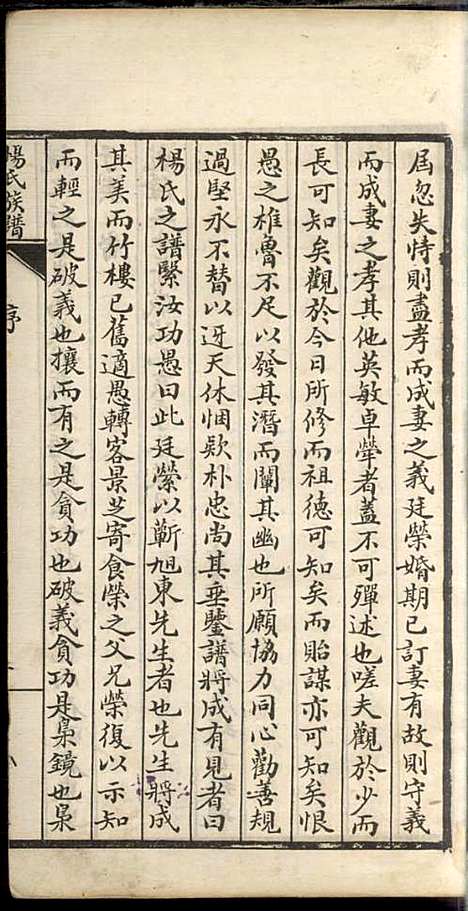 屆忽失恃則盡孝而成妻之義廷榮婚期已訂妻有故則守義
而成妻之孝其他英敏卓犖者蓋不可殫述也嗟夫觀於少而
長可知矣觀於今日所修而祖德可知矣而貽謀亦可知矣恨
愚之椎魯不足以發其潛而闡其幽也所願協力同心勸善規
過堅永不替以迓天休悃欵朴忠尚其垂鑒譜將成有見者曰
楊氏之譜繄汝功愚曰此廷榮以蘄旭東先生者也先生將成
其美而竹樓已舊適愚轉客景芝寄食榮之父兄榮復以示知
而輕之是破義也攘而有之是貪功也破義貪功是梟鏡也梟
楊氏族譜
序